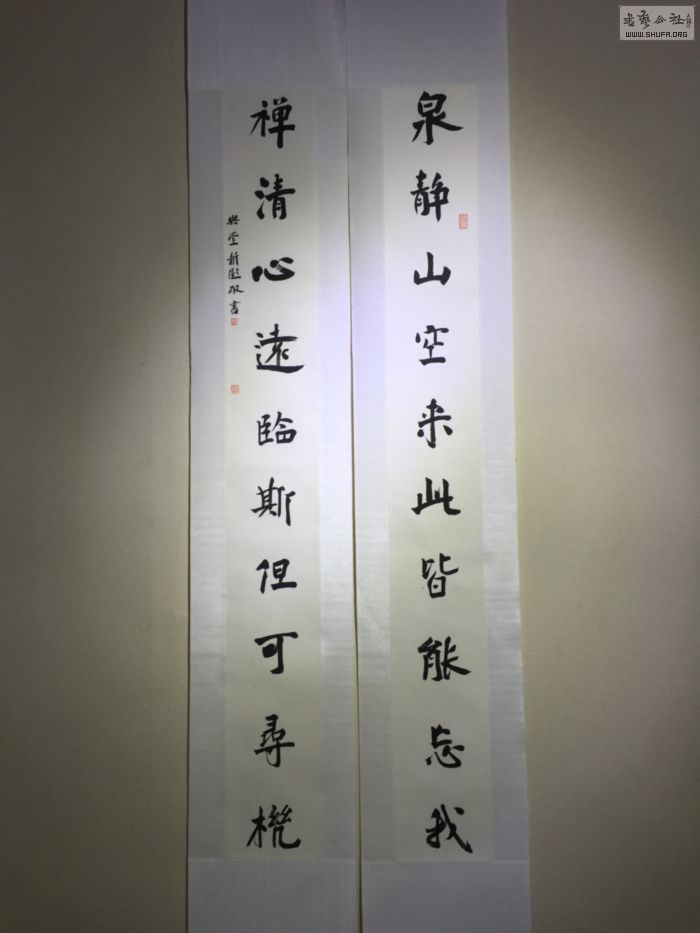 泉静山空来此皆能忘我
禅清心遠臨斯但可尋機
敬書
書藝公社
WWW.SHUFA.ORG